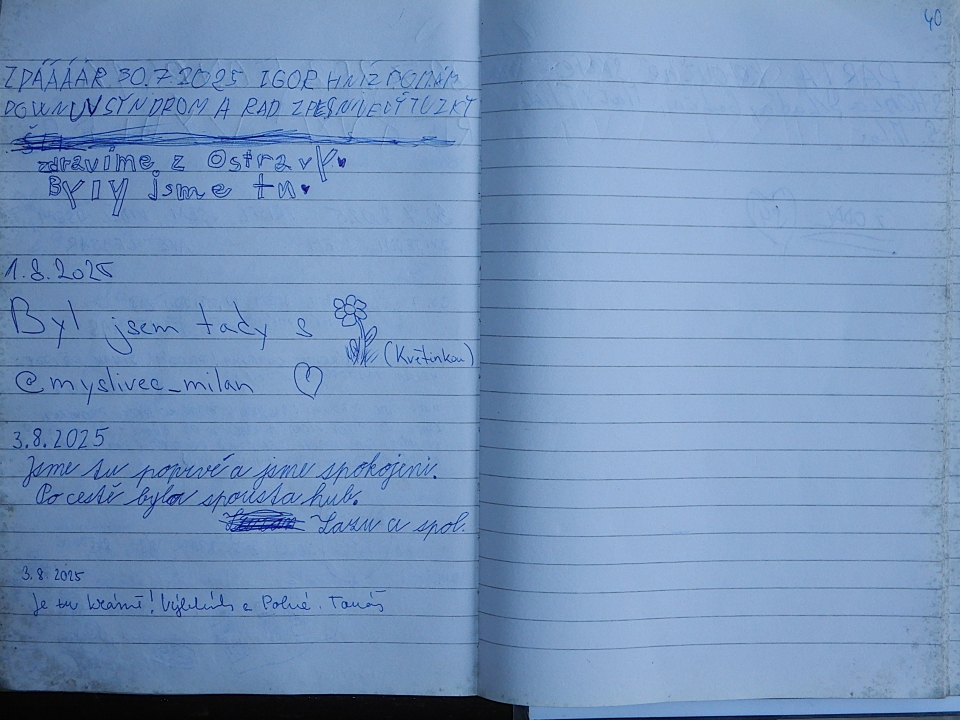 40
ZDÁÁÁÁR 30.7.2025 IGOR HNÍZDO MÁM
DOWNUV SYNDROM A RAD
zdravíme z Ostravy
Byly jsme tu
1.8.2025
Byl jsem tady s
(Květinkou)
@myslivec_milan
3.8.2025
Jsme tu poprvé a jsme spokojeni.
Po cestě byla spousta hub.
a spol.
3.8.2025
Je tu krásně! Tomáš